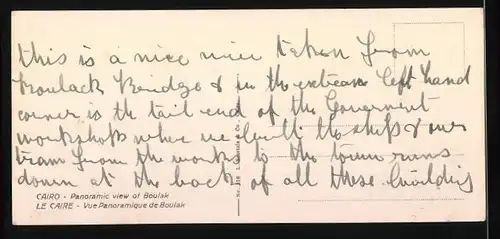 this is a nice view taken from
Boulack Bridge & in the extream left hand
corner is the tail end of the Goverment
workshops where we built the ships & our
tram from the works to the town runs
down at the back of all these building
CAIRO - Panoramic view of Boulak
LE CAIRE - Vue Panoramique de Boulak